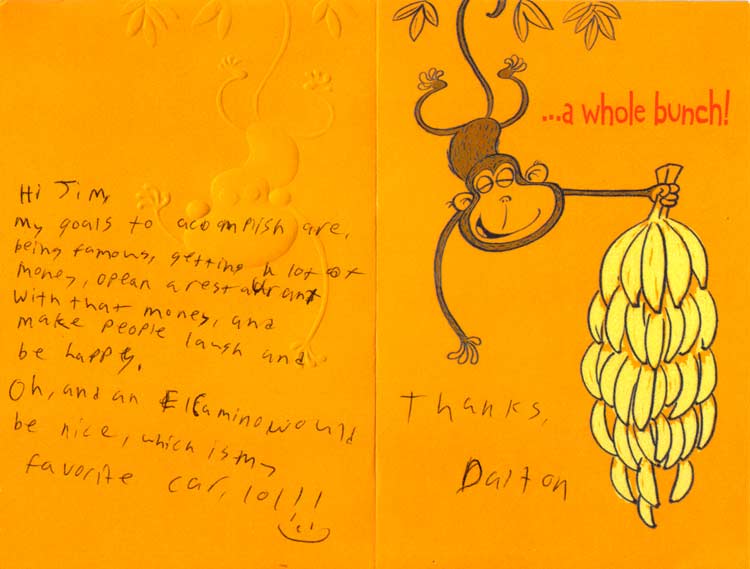 Hi Jim,
My goals to acomplish are,
being famous, getting a lot of
money, opean a restaurant
with that money, and
make people laugh and
be happy.
Oh, and an Elcamino would
be nice, which is my
favorite car, lol!!
...a whole bunch!
Thanks,
Dalton